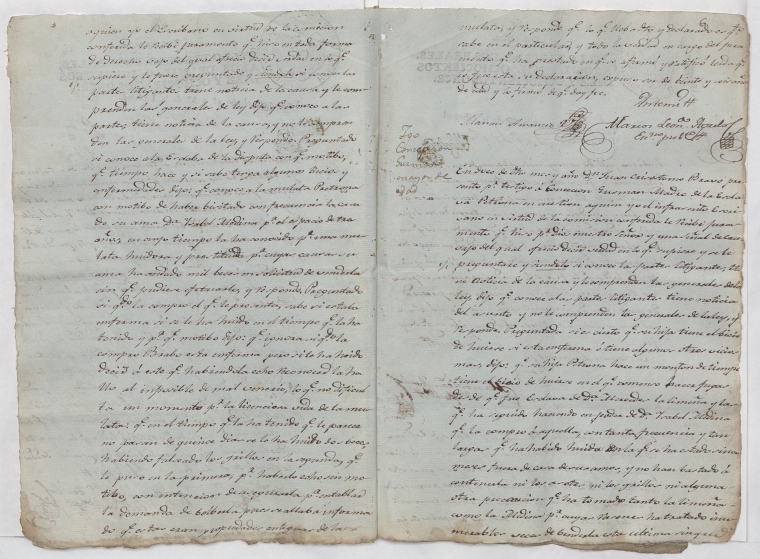 aquien yo el Escribano en virtud de la comicion
conferida le Recibí juramento qe. hizo en toda forma
de derecho vajo del qual ofreció decir verdad en lo qe.
supiere y le fuere preguntado y siendole si conoce las
partes litigantes tiene noticia de la causa y le com-
prenden las generales de ley dijo qe. conoce a las
partes, tiene noticia de la causa, y no le compren-
den las generales de la ley, y Responde. Preguntado
si conoce a la Esclaba de la disputa con qe. motibo,
qe. tiempo hace y si sabe tenga algunos vicios y
enfermedades dijo: qe. conoce a la mulata Petrona
con motibo de haber bicitado con frecuencia la casa
de su ama Da. Isabel Medina pr. el espacio de tres
años, en cuyo tiempo la ha conocido pr. una mu-
lata huidora y prostituida pr. cuya causa su
ama ha andado mil beces en solicitud de venderla
sin qe. pudiera efectuarlo, y Responde. Preguntado
si qdo. la compro el qe. le presenta, sabe si estaba
enferma si se le ha huido en el tiempo qe. la ha
tenido y pr. qe. motibo dijo: qe. ignora si qdo. la
compro Brabo estaba enferma pero si le ha huido
devido a esto qe. habiendola echo Reconocer la ha
llo al imposible de mal venereo, lo qe. no dificul
ta un momento pr. la licenciosa vida de la mu-
lata: qe. en el tiempo qe. la ha tenido qe. le parece
no pasan de quince dias se le ha huido dos beces,
habiendo falseado los grillos en la segunda, qe.
le puso en la primera, pr. haberlo echo sin mo-
tibo, con intencion de asegurarla pa. entablar
la demanda de bolberla pues se allaba informa
do qe. estas eran propiedades antiguas de la
mulata, y responde qe. lo qe. lleba dho. y declarado es qto.
sabe en el particular, y todo la verdad en cargo del jura
mento qe. ha prestado en qe. se afirmó y ratificó leida qe.
le fue esta su declaracion, expuso ser de veinte y seis años
de edad y lo firmó de qe. doy fee.
Antemi
Manuel Marcos Leon Aguilar
Esno. pub.
Tgo.
Concepcion
Guzman
mayor de
En dcho. mes y año Dn. Juan Crisostomo Bravo pre
sentó pr. testigo a Concepcion Guzman Madre de la Escla
va Petrona en cuestion aquien yo el infrascrito Escri
vano en virtud de la comision conferida le Recibí jura
mento qe. hizo pr. Dios nuestro Señor y una señal de cruz
vajo del qual ofreció decir verdad en lo qe. supiere y se le
preguntare y siendolo si conoce las partes litigantes, tie
ne noticia de la causa y le comprenden las generales de la
ley, dijo qe. conoce a las partes litigantes tiene noticia
del asunto y no le comprenden las generales de la ley, y
Responde. Preguntada si es cierto qe. su hija tiene el bicio
de huirse si esta enferma ó tiene algunos otros vicios
mas, dijo: qe. su hija Petrona hace un monton de tiempo
tiene el bicio de huirse en el qe. comenzo a acer fuga
desde qe. fue Esclava de Da. Mercedes la limeña y las
qe. ha seguido haciendo en poder de Da. Isabel Medina
qe. la compro a aquella, con tanta frecuencia y tan
largas qe. ha habido huida en la qe. se ha estado cinco
meses fuera de casa de sus amos, y no han bastado á
contenerla ni los azotes, ni los grillos ni alguna
otra precaucion qe. ha tomado tanto la limeña
como la Medina pr. cuya Razon ha tratado inu
merables veces de benderla esta ultima sin qe.